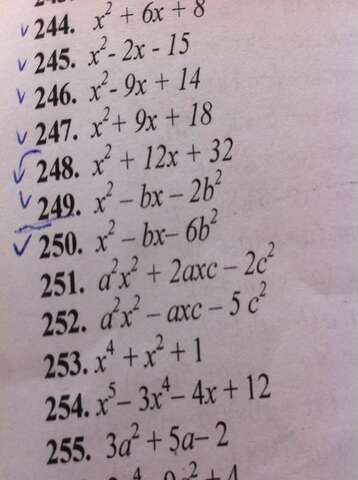 244. x² + 6x + 8
245. x² - 2x - 15
246. x² - 9x + 14
247. x² + 9x + 18
248. x² + 12x + 32
249. x² – bx – 2b²
250. x² – bx – 6b²
251. a²x² + 2axc – 2c²
252. a²x² – axc – 5c²
253. x⁴ + x² + 1
254. x⁵ – 3x⁴ – 4x + 12
255. 3a² + 5a – 2